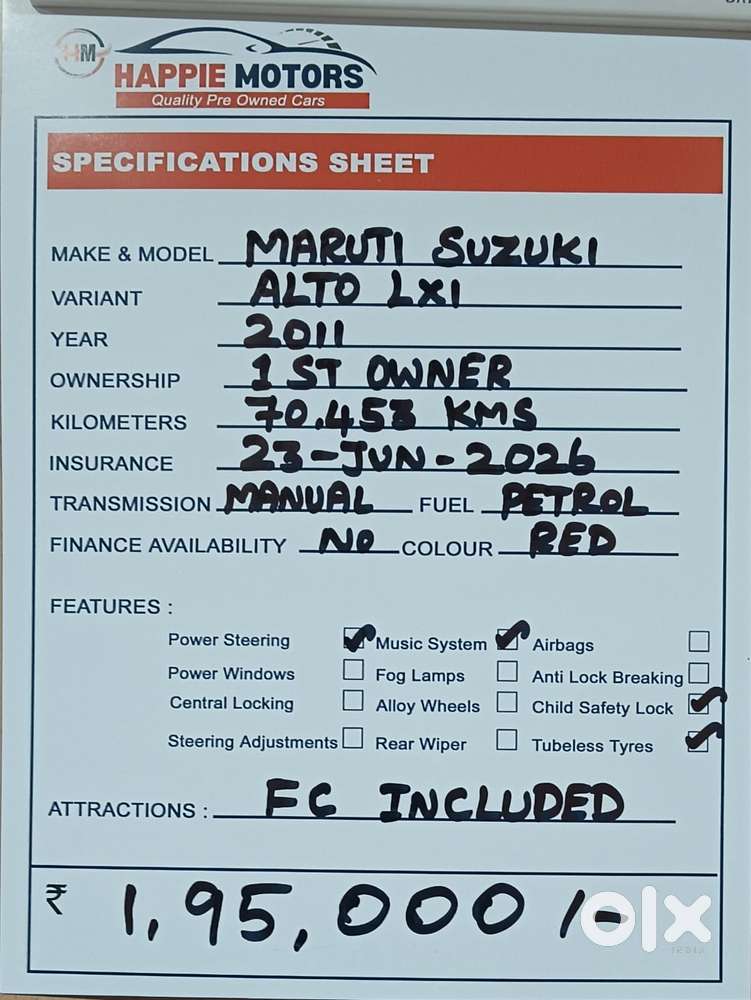 HM
HAPPIE MOTORS
Quality Pre Owned Cars
SPECIFICATIONS SHEET
MAKE & MODEL MARUTI SUZUKI
VARIANT ALTO LXI
YEAR 2011
OWNERSHIP 1ST OWNER
KILOMETERS 70.453 KMS
INSURANCE 23-JUN-2026
TRANSMISSION MANUAL FUEL PETROL
FINANCE AVAILABILITY NO COLOUR RED
FEATURES :
Power Steering Music System Airbags
Power Windows Fog Lamps Anti Lock Breaking
Central Locking Alloy Wheels Child Safety Lock
Steering Adjustments Rear Wiper Tubeless Tyres
ATTRACTIONS : FC INCLUDED
₹ 1,95,000/-
olx
INDIA